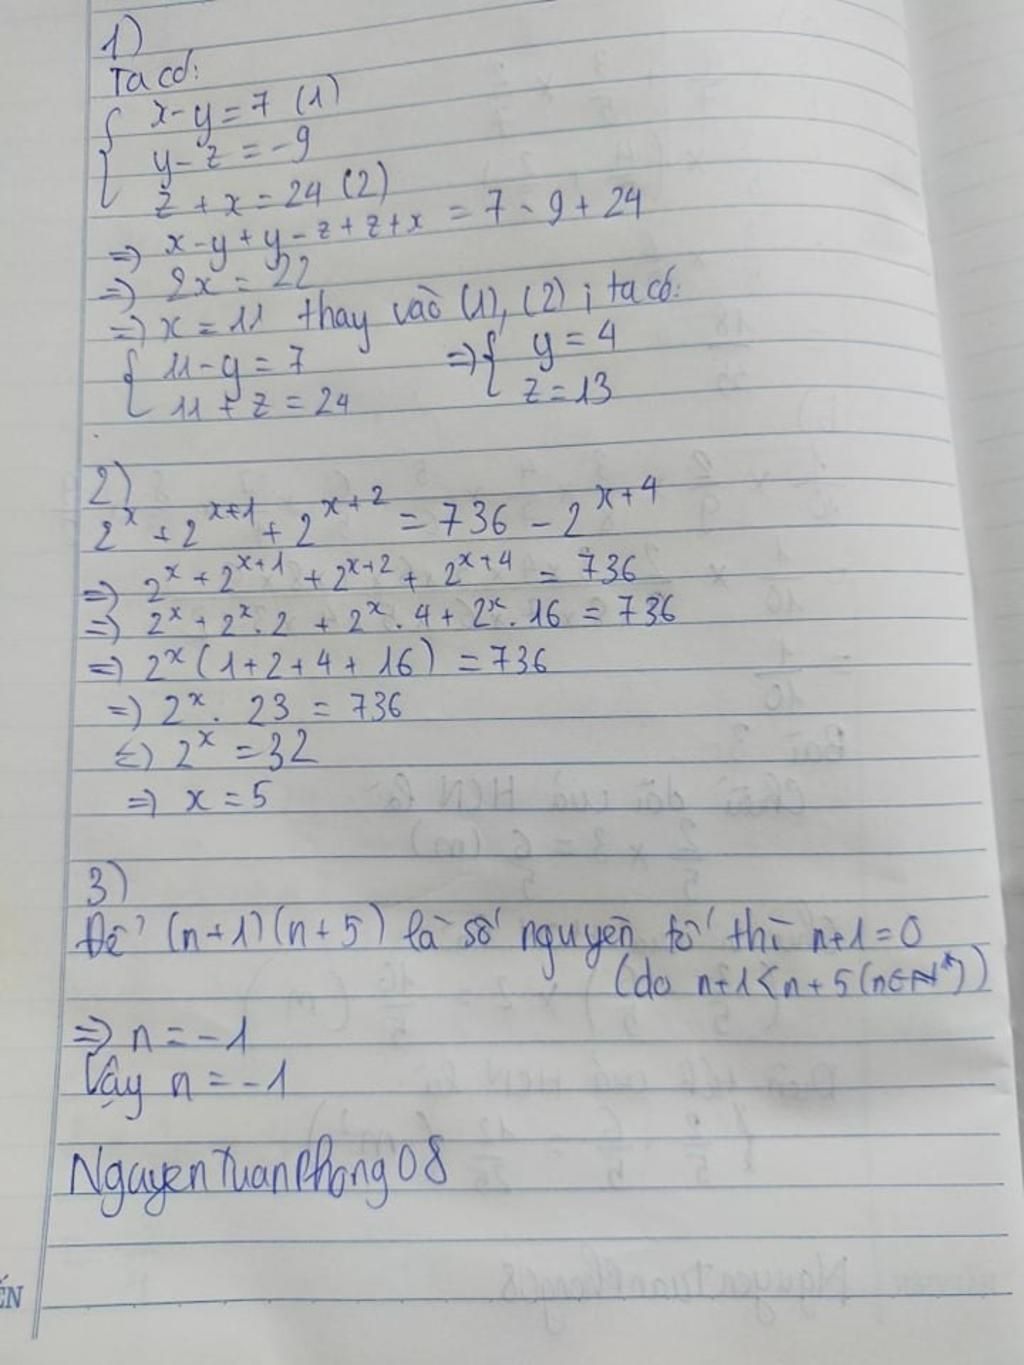 1)
Ta có:
{ x - y = 7 (1)
y - z = -9
z + x = 24 (2)
=> x - y + y - z + z + x = 7 - 9 + 24
=> 2x = 22
=> x = 11 thay vào (1), (2) ; ta có:
{ 11 - y = 7 => { y = 4
11 + z = 24 z = 13
2)
2^x + 2^{x+1} + 2^{x+2} = 736 - 2^{x+4}
=> 2^x + 2^{x+1} + 2^{x+2} + 2^{x+4} = 736
=> 2^x + 2^x . 2 + 2^x . 4 + 2^x . 16 = 736
=> 2^x (1 + 2 + 4 + 16) = 736
=> 2^x . 23 = 736
<=> 2^x = 32
=> x = 5
3)
Để (n+1)(n+5) là số nguyên tố thì n+1 = 0
(do n+1 < n+5 (n ∈ N*))
=> n = -1
Vậy n = -1
NguyenTuanPhong08
ẾN